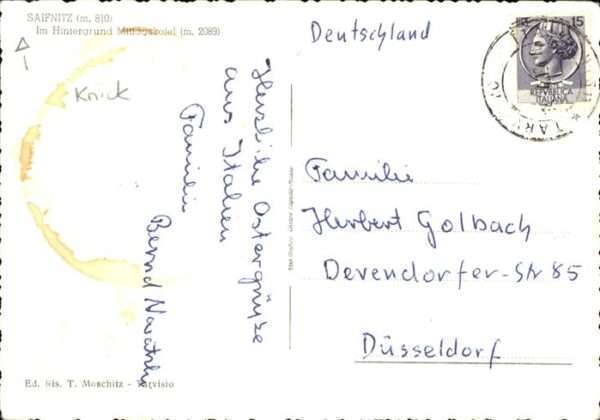 SAIFNITZ (m. 810)
Im Hintergrund Mittagskofel (m. 2089)
Knick
Herzliche Ostergrüße
aus Italien
Familie
Bernd
Ed. Ris. T. Moschitz - Tarvisio
Deutschland
15
REPVBBLICA
ITALIANA
Familie
Herbert Golbach
Devendorfer-Str 85
Düsseldorf